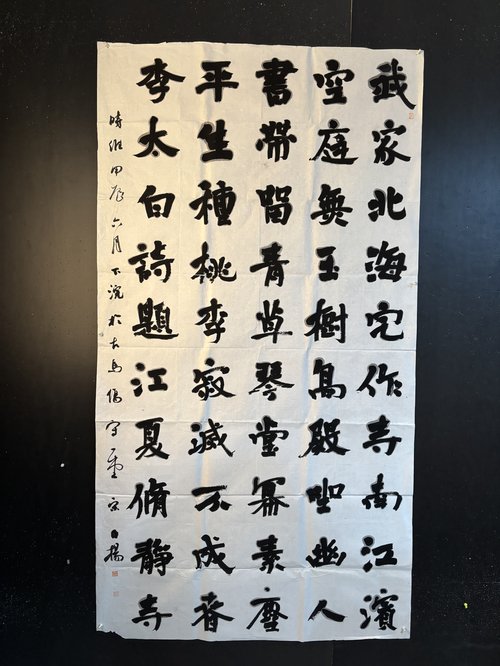 我家北海宅作寺南江濱
空庭無玉樹高殿坐幽人
書帶留青草琴堂冪素塵
平生種桃李寂滅不成春
李太白詩題江夏脩靜寺
時維甲辰六月下浣於古烏傷守白楊